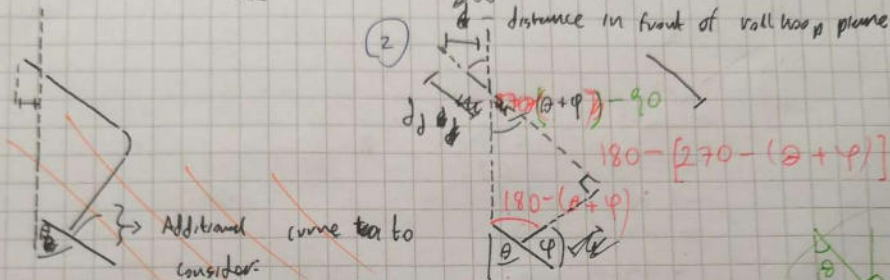 distance in front of roll hoop plane
2
(θ+φ)-90
180-[270-(θ+φ)]
180-(θ+φ)
Additional curve to
consider.
θ φ
θ